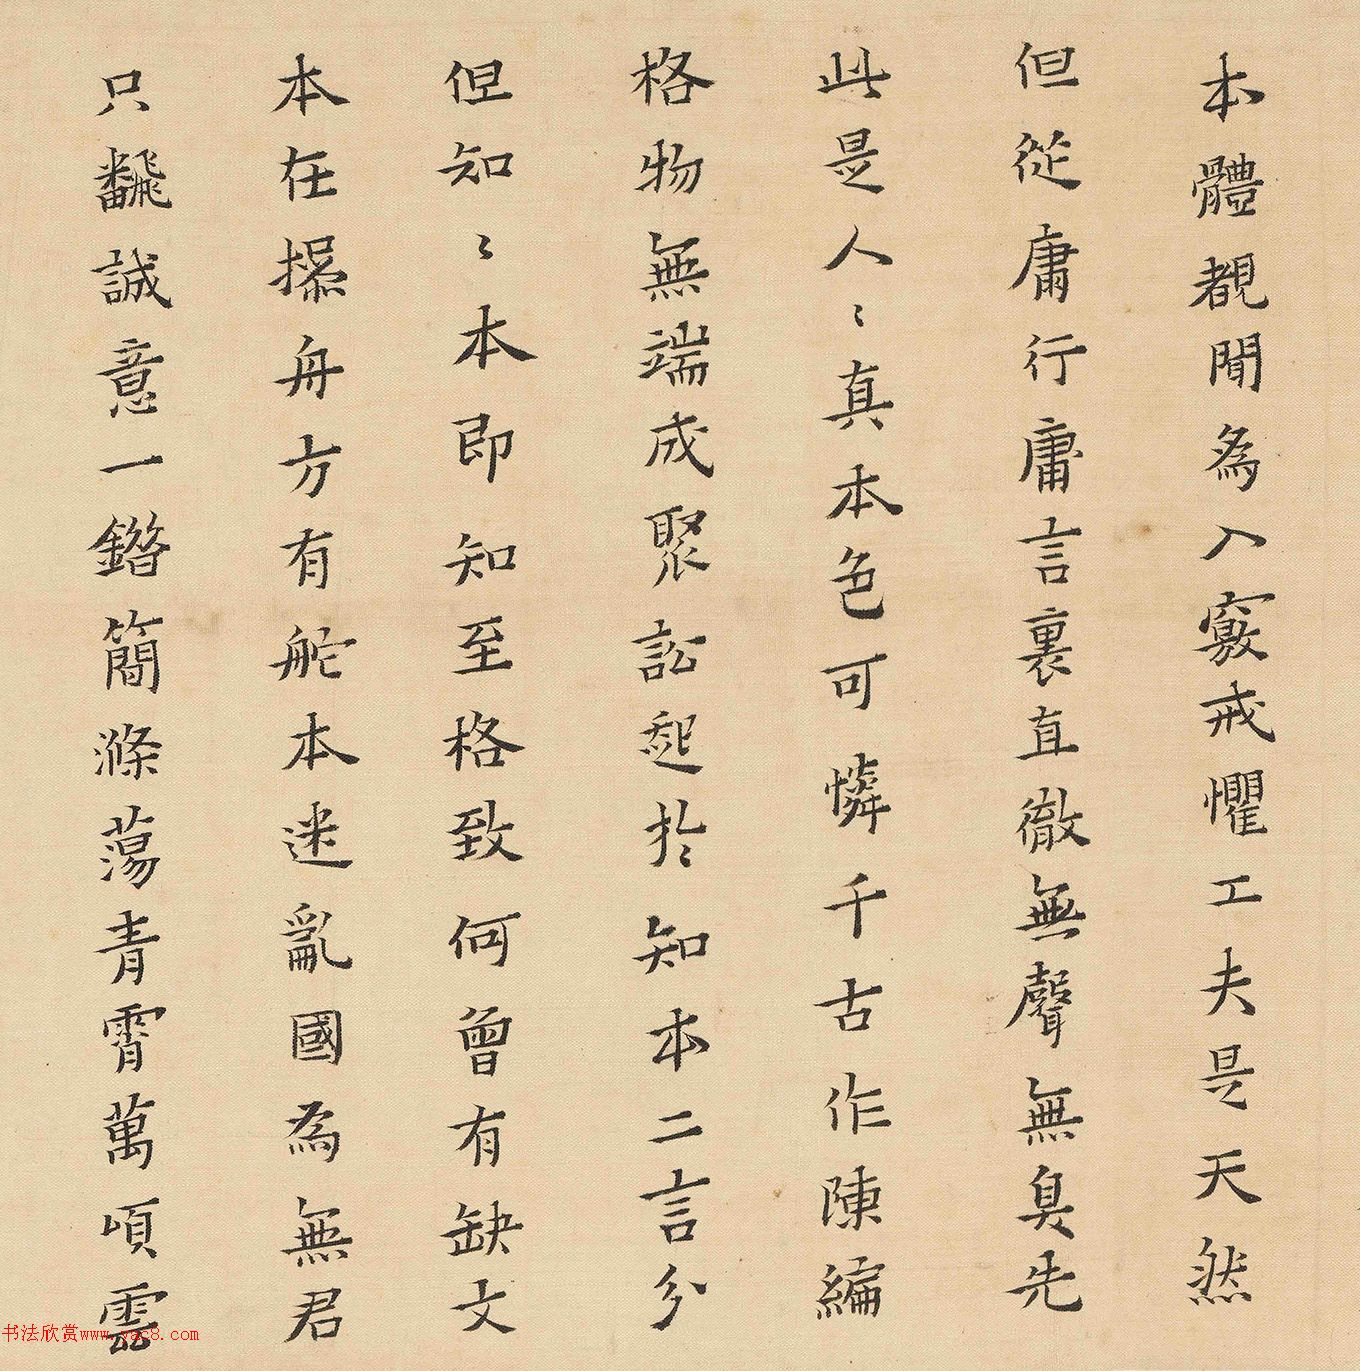 本體覩聞為入竅戒懼工夫是天然
但從庸行庸言裏直徹無聲無臭先
此是人〻真本色可憐千古作陳編
格物無端成聚訟起於知本二言分
但知〻本即知至格致何曾有缺文
本在操舟方有舵本迷亂國為無君
只飜誠意一錯簡滌蕩青霄萬頃雲
书法欣赏www.yac8.com